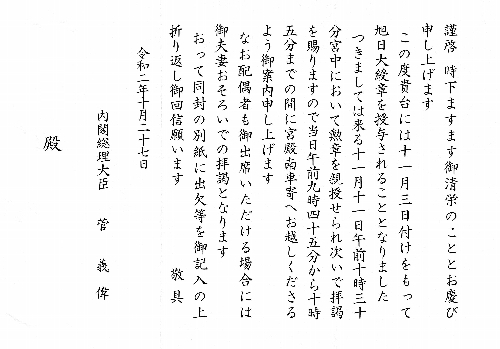 謹啓　時下ますます御清栄のこととお慶び
申し上げます
この度貴台には十一月三日付けをもって
旭日大綬章を授与されることとなりました
つきましては来る十一月十一日午前十時三十
分宮中において勲章を親授せられ次いで拝謁
を賜りますので当日午前九時四十五分から十時
五分までの間に宮殿南車寄へお越しくださる
よう御案内申し上げます
なお配偶者も御出席いただける場合には
御夫妻おそろいでの拝謁となります
おって同封の別紙に出欠等を御記入の上
折り返し御回信願います
敬具
令和二年十月二十七日
内閣総理大臣　菅　義　偉
殿